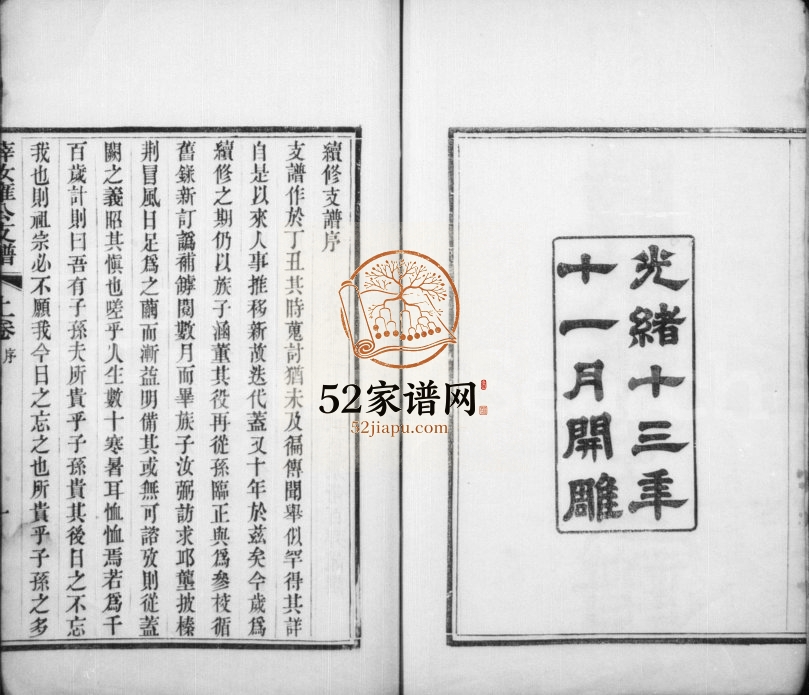 光緒十三年
十一月開雕
續修支譜序
支譜作於丁丑其時蒐討猶未及徧傳聞舉似罕得其詳
自是以來人事推移新故迭代蓋又十年於茲矣今歲爲
續修之期仍以族子涵董其役再從孫臨正與爲參校循
舊錄新訂譌補罅閱數月而畢族子汝弼訪求邱壟披榛
荆冒風日足爲之繭而漸益明備其或無可諮攷則從蓋
闕之義昭其愼也嗟乎人生數十寒暑耳恤恤焉若爲千
百歲計則曰吾有子孫夫所貴乎子孫貴其後日之不忘
我也則祖宗必不願我今日之忘之也所貴乎子孫之多
公支譜
上卷 序
一
52家谱网
52jiapu.com